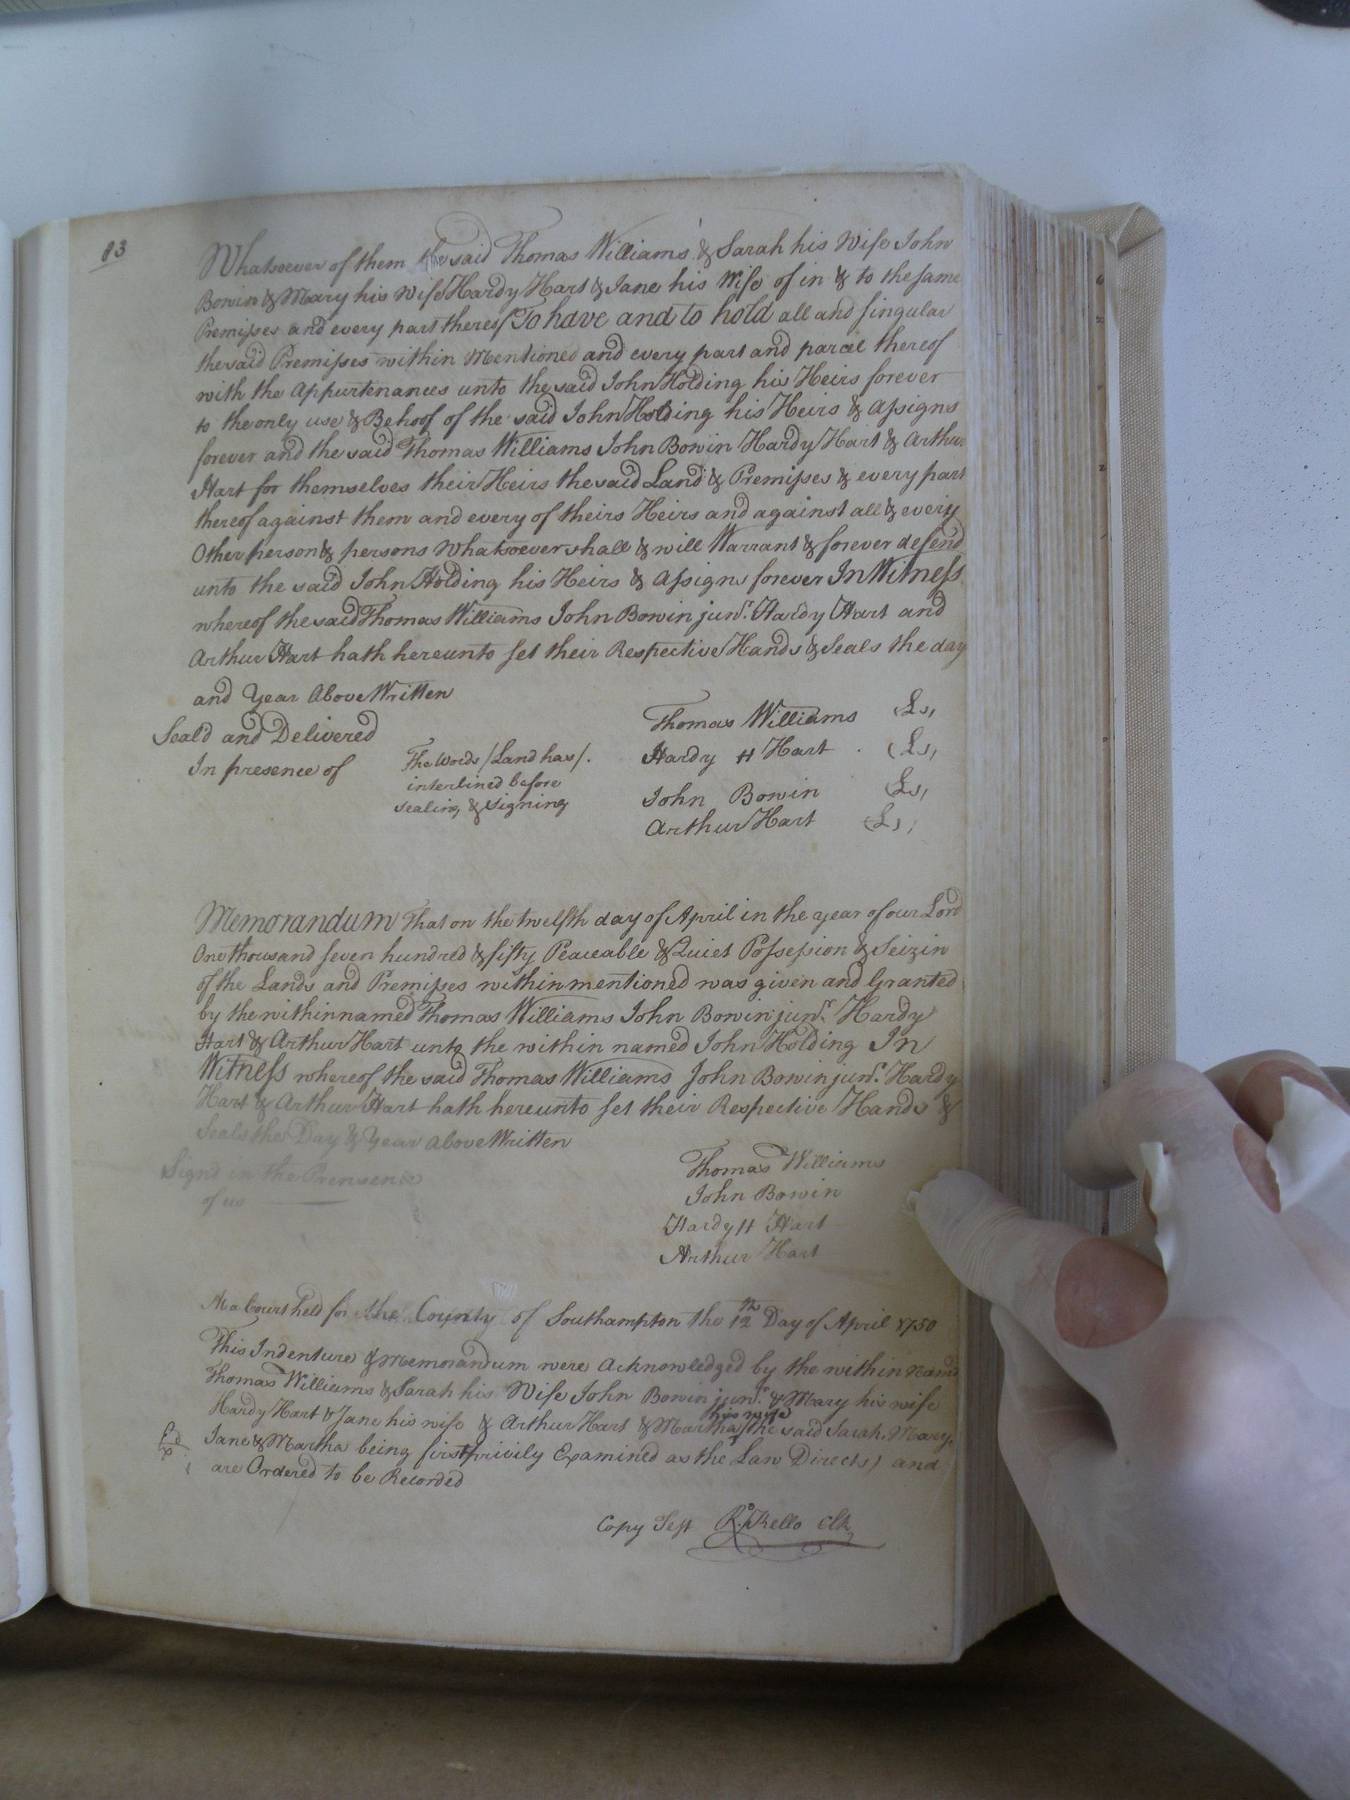 83
Whatsoever of them the said Thomas Williams & Sarah his Wife John
Bowin & Mary his Wife Hardy Hart & Jane his Wife of in & to the same
Premisses and every part thereof To have and to hold all and singular
the said Premisses within Mentioned and every part and parcel thereof
with the Appurtenances unto the said John Holding his Heirs forever
to the only use & Behoof of the said John Holding his Heirs & Assigns
forever and the said Thomas Williams John Bowin Hardy Hart & Arthur
Hart for themselves their Heirs the said Land & Premisses & every part
thereof against them and every of theirs Heirs and against all & every
Other person & persons Whatsoever shall & will Warrant & forever defend
unto the said John Holding his Heirs & Assigns forever In Witness
whereof the said Thomas Williams John Bowin junr. Hardy Hart and
Arthur Hart hath hereunto set their Respective Hands & Seals the day
and Year Above Written
Seal'd and Delivered
In presence of
The Words /Land has/.
interlined before
sealing & signing
Thomas Williams (Ls,
Hardy H Hart (Ls,
John Bowin (Ls,
Arthur Hart (Ls,
Memorandum That on the twelfth day of April in the year of our Lord
One thousand seven hundred & fifty Peaceable & Quiet Possession & Seizin
of the Lands and Premisses within mentioned was given and Granted
by the within named Thomas Williams John Bowin junr. Hardy
Hart & Arthur Hart unto the within named John Holding In
Witness whereof the said Thomas Williams John Bowin junr. Hardy
Hart & Arthur Hart hath hereunto set their Respective Hands &
Seals the Day & Year above Written
Signd in the Prensence
of us
Thomas Williams
John Bowin
Hardy H Hart
Arthur Hart
At a Court held for the County of Southampton the 12th Day of April 1750
This Indenture & Memorandum were Acknowledged by the within Namd
Thomas Williams & Sarah his Wife John Bowin junr. & Mary his wife
Hardy Hart & Jane his wife & Arthur Hart & Martha his wife (the said Sarah, Mary,
Jane & Martha being first privily Examined as the Law Directs) and
are Ordered to be Recorded
Copy Test Rd. Kello Clk